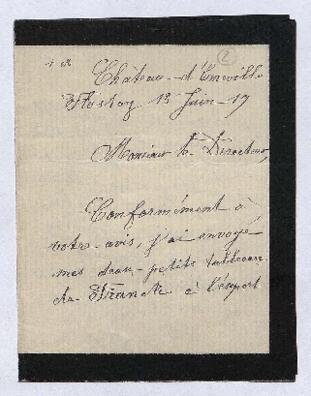 2
Château - d'Emvill
Hostoy 13 Juin - 17
Monsieur le Directeur,
Conformément à
votre - avis, j'ai envoyé
mes deux - petits tableaux
de Franck à l'expert